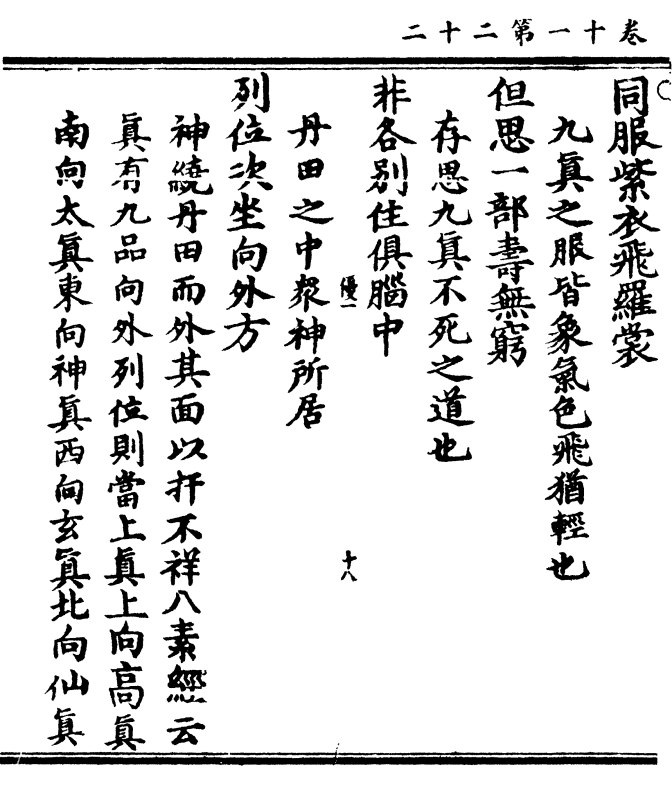 卷十一第二十二
同服紫衣飛羅裳
九真之服皆象氣色飛猶輕也
但思一部壽無窮
存思九真不死之道也
非各別住俱腦中
優一
十八
丹田之中衆神所居
列位次坐向外方
神繞丹田而外其面以扞不祥八素經云
真有九品向外列位則當上真上向高真
南向太真東向神真西向玄真北向仙真